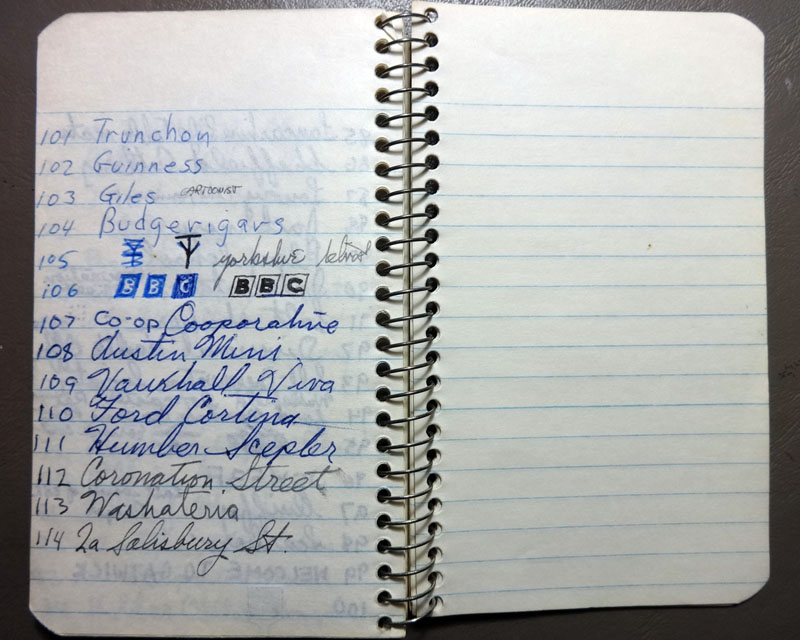 101 Trunchon
102 Guinness
103 Giles CARTOONIST
104 Budgerigars
105 yorkshire
106 BBC BBC
107 CO-OP Cooporative
108 Austin Mini
109 Vauxhall Viva
110 Ford Cortina
111 Humber Scepler
112 Coronation Street
113 Washateria
114 2a Salisbury St.
99 WELCOME TO GATWICK
100